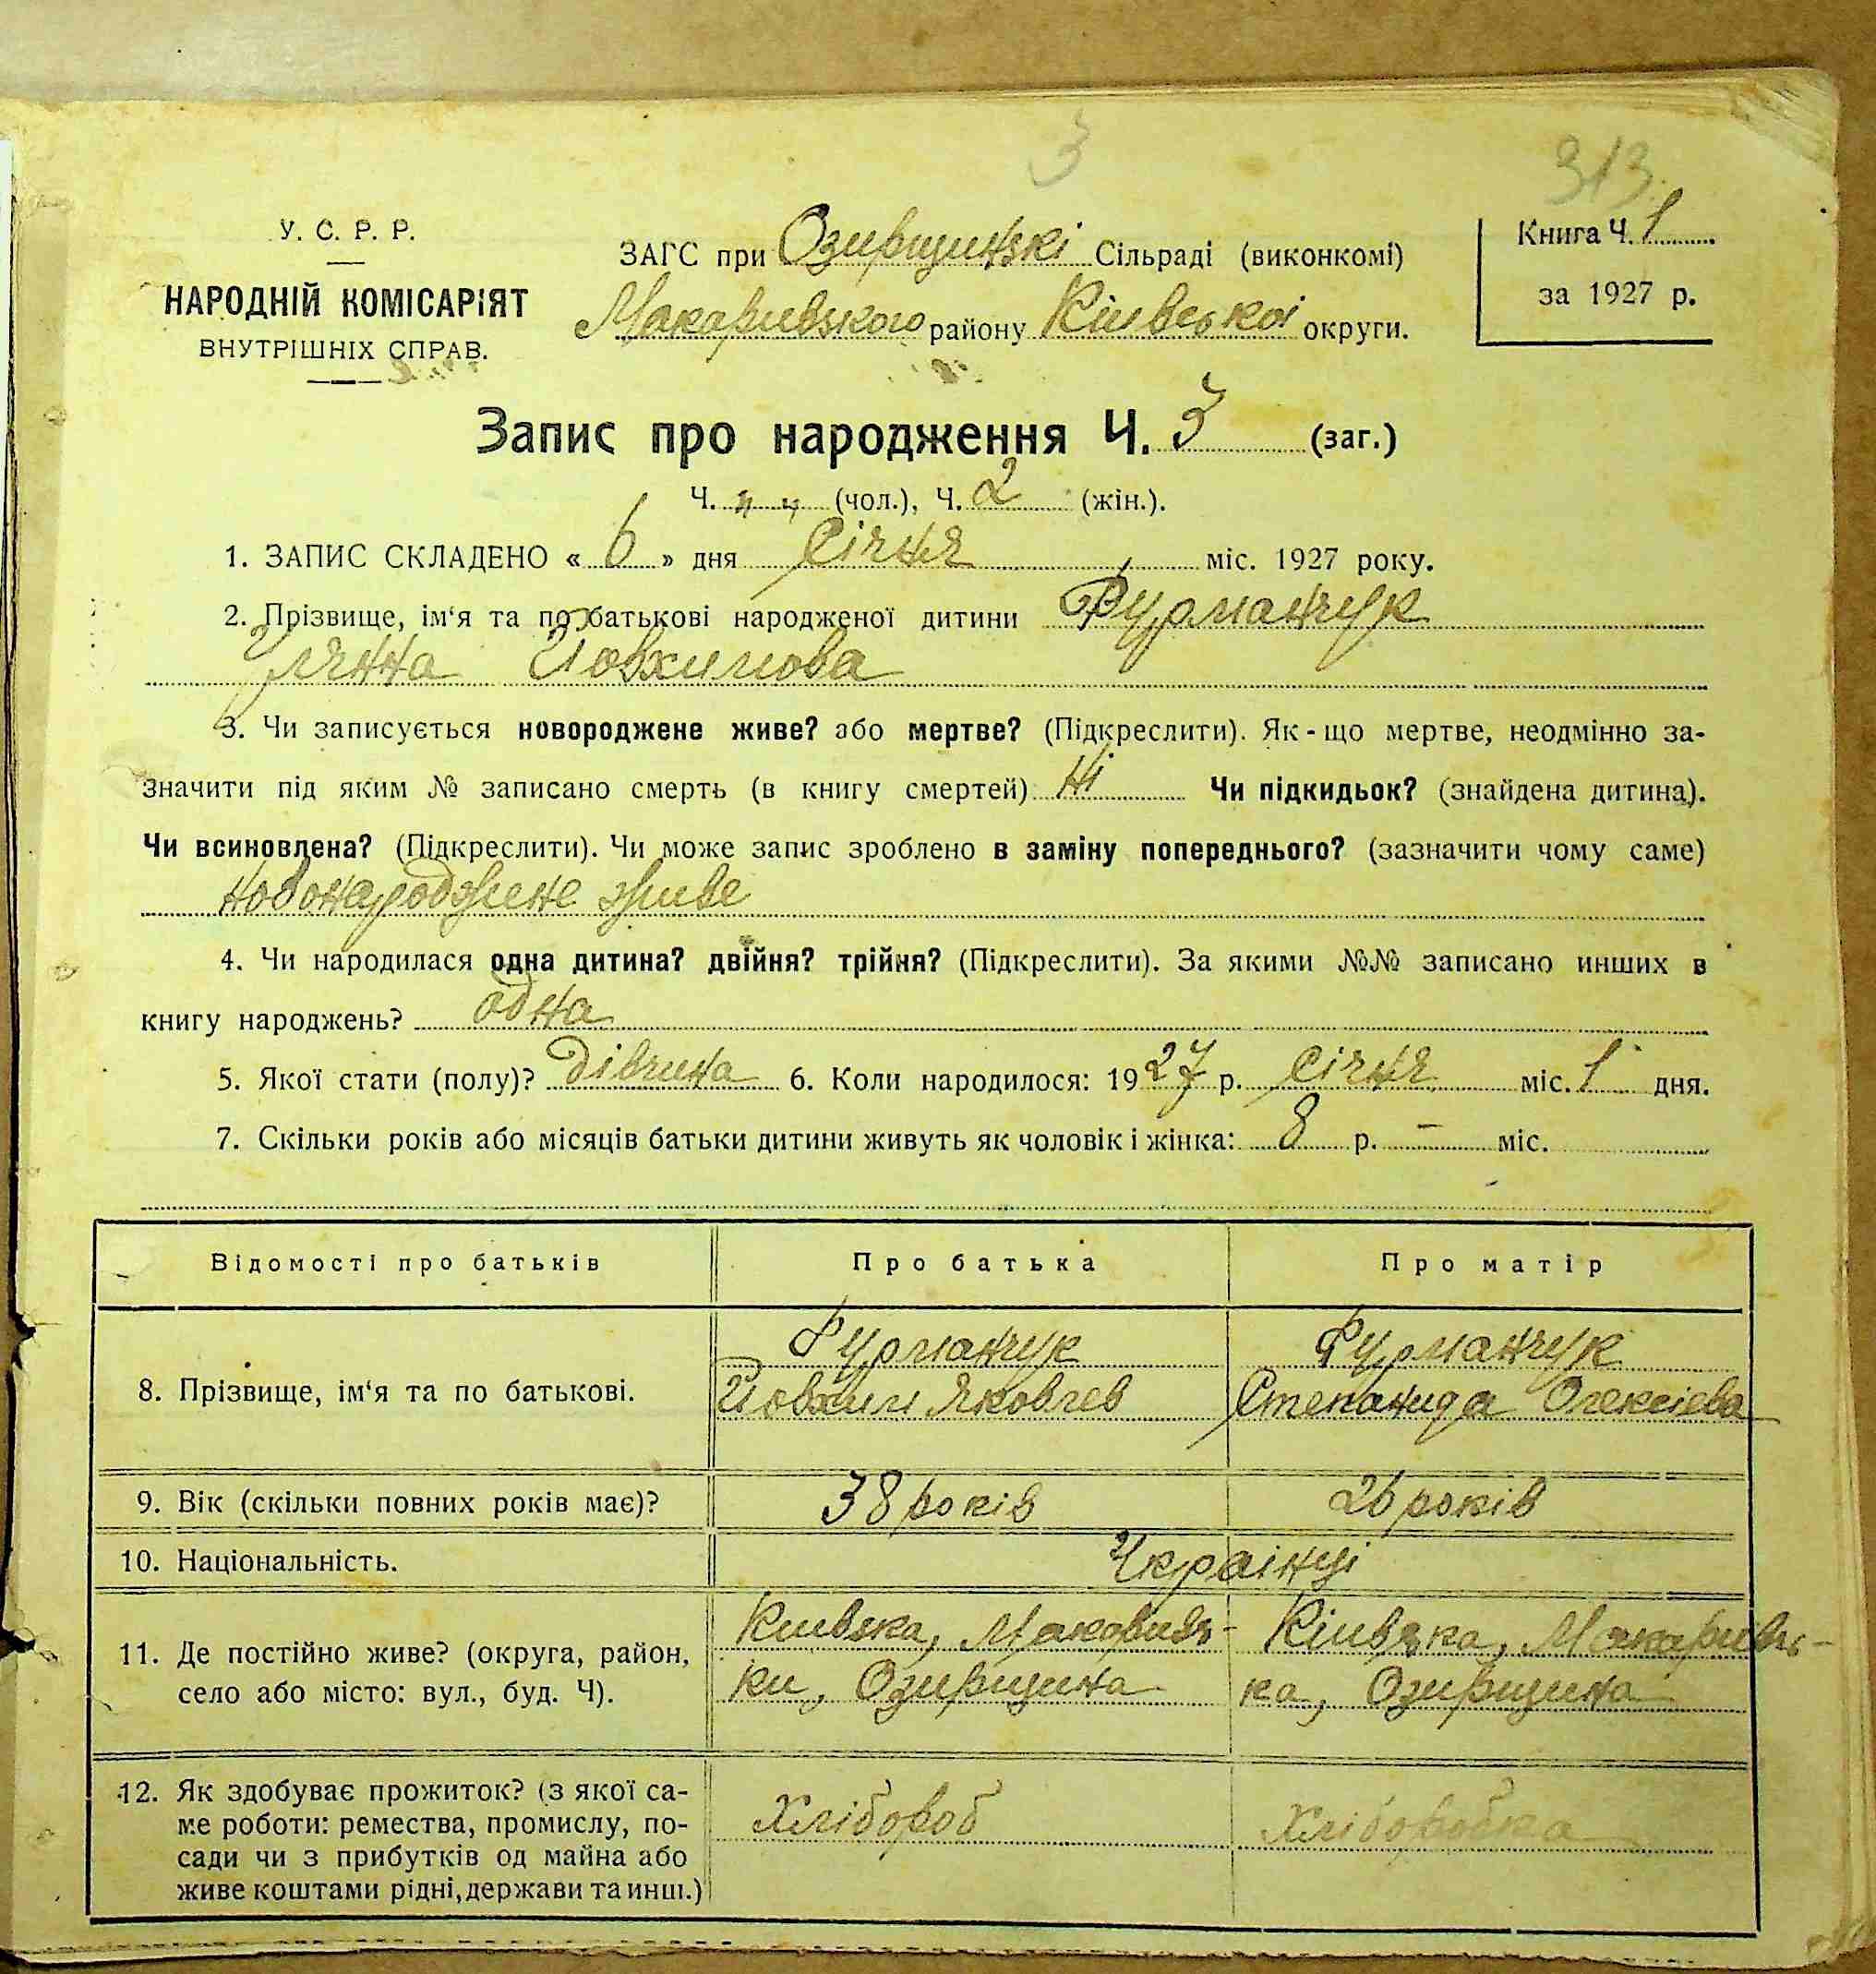 3
313.
У. С. Р. Р.
НАРОДНІЙ КОМІСАРІЯТ
ВНУТРІШНІХ СПРАВ.
ЗАГС при Озирщинскі Сільраді (виконкомі)
Макаривского району Кіивскоі округи.
Книга Ч. 1
за 1927 р.
Запис про народження Ч. 3 (заг.)
Ч. " " (чол.), Ч. 2 (жін.).
1. ЗАПИС СКЛАДЕНО « 6 » дня Січня міс. 1927 року.
2. Прізвище, ім‘я та по батькові народженої дитини Фурманчук
Улянна Йовхимова
3. Чи записується новороджене живе? або мертве? (Підкреслити). Як-що мертве, неодмінно за-
значити під яким № записано смерть (в книгу смертей) Ні Чи підкидьок? (знайдена дитина).
Чи всиновлена? (Підкреслити). Чи може запис зроблено в заміну попереднього? (зазначити чому саме)
новонароджине живе
4. Чи народилася одна дитина? двійня? трійня? (Підкреслити). За якими №№ записано инших в
книгу народжень? одна
5. Якої стати (полу)? дівчина 6. Коли народилося: 1927 р. Січня міс. 1 дня.
7. Скільки років або місяців батьки дитини живуть як чоловік і жінка: 8 р. – міс.
Відомості про батьків Про батька Про матір
8. Прізвище, ім‘я та по батькові.
Фурманчук
Йовхим Яковлев
Фурманчук
Степанида Олексіева
9. Вік (скільки повних років має)? 38 років 26 років
10. Національність. Украінці
11. Де постійно живе? (округа, район,
село або місто: вул., буд. Ч).
Киивска,
ки, Озирщина
Кіивска, Макаривс-
ка, Озирщина
12. Як здобуває прожиток? (з якої са-
ме роботи: ремества, промислу, по-
сади чи з прибутків од майна або
живе коштами рідні, держави та инш.)
Хлібороб
Хлібороб­ка